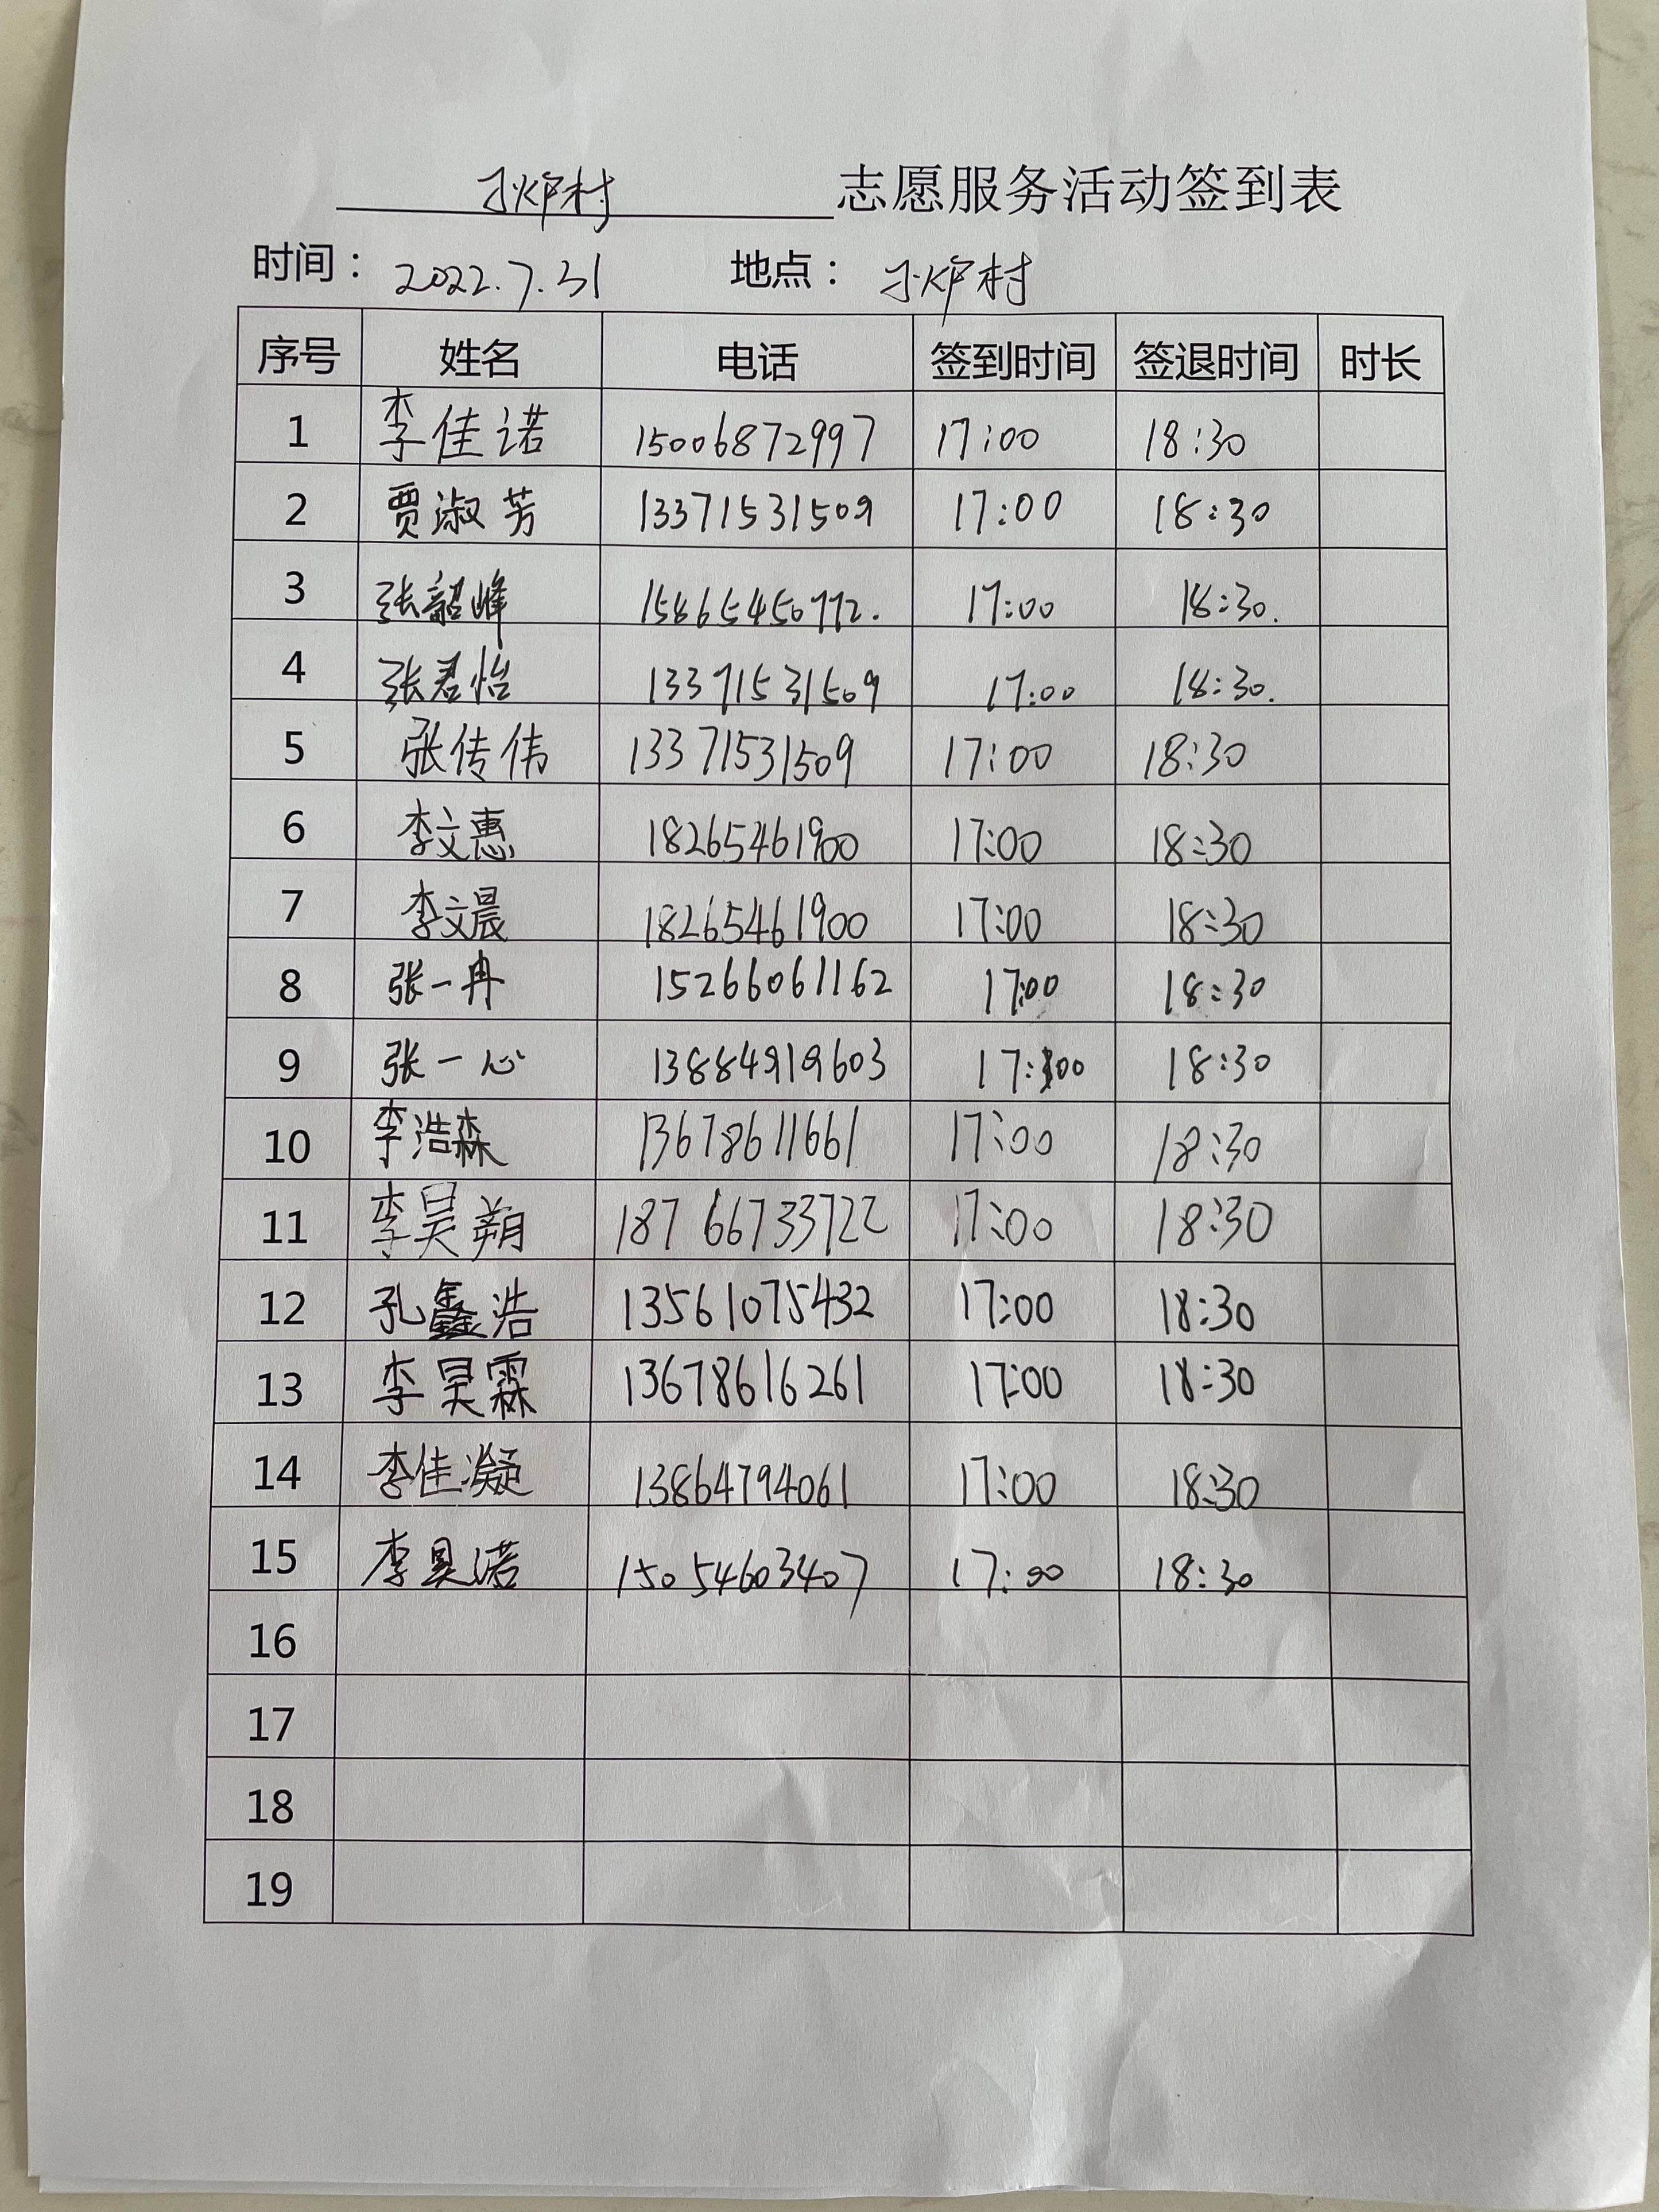 村 志愿服务活动签到表
时间： 2022.7.31 地点： 村
序号 姓名 电话 签到时间 签退时间 时长
1 李佳诺 15006872997 17:00 18:30
2 贾淑芳 13371531509 17:00 18:30
3 张韶峰 15865450772. 17:00 18:30.
4 张君怡 13371531509 17:00 18:30.
5 张传伟 13371531509 17:00 18:30
6 李文惠 18265461900 17:00 18:30
7 李文晨 18265461900 17:00 18:30
8 张一冉 15266061162 17:00 18:30
9 张一心 13884919603 17:00 18:30
10 李浩森 13678611661 17:00 18:30
11 李昊朔 18766733722 17:00 18:30
12 孔鑫浩 13561075432 17:00 18:30
13 李昊霖 13678616261 17:00 18:30
14 李佳凝 13864794061 17:00 18:30
15 李昊诺 15054603407 17:00 18:30
16
17
18
19